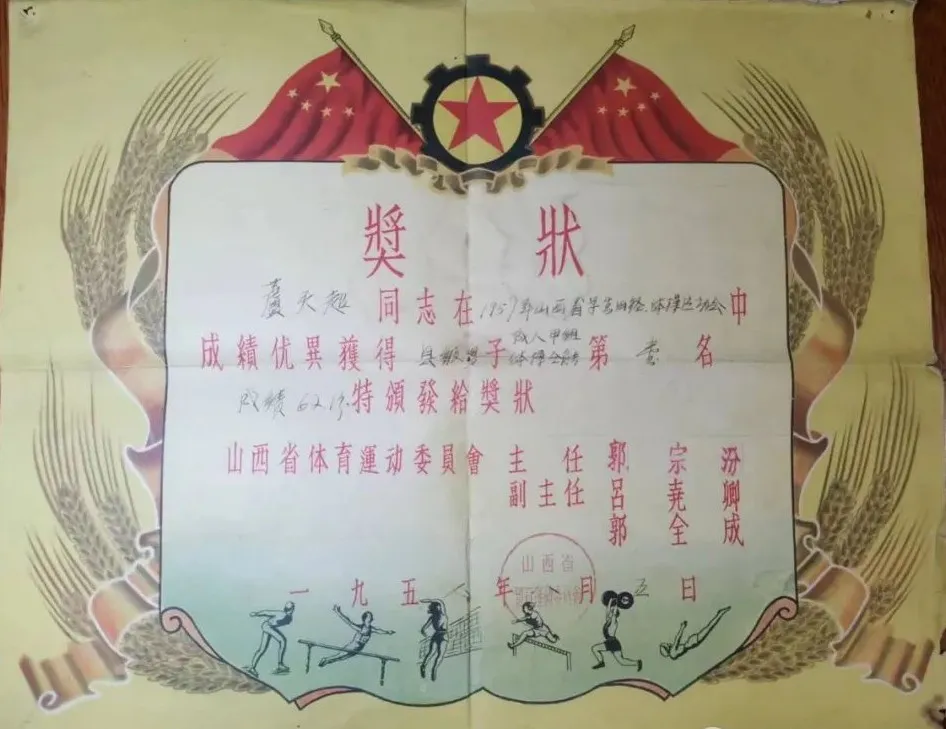 獎狀
盧天超同志在1957年山西省学生田径.体操运动会中
成績优異獲得 子成人甲組体操全能第壹名
成績62.15特頒發給獎狀
山西省体育運动委員會 主任 郭宗汾
副主任 呂尭卿
郭全成
山西省
一九五 年 月五日